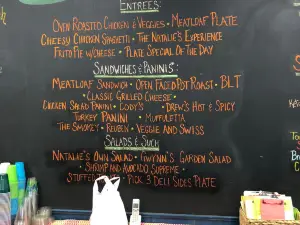 ENTREES:
OVEN ROASTED CHICKEN & VEGGIES • MEATLOAF PLATE
CHEESY CHICKEN SPAGHETTI • THE NATALIE'S EXPERIENCE
FRITO PIE W/CHEESE • PLATE SPECIAL OF THE DAY
SANDWICHES & PANINIS
MEATLOAF SANDWICH • OPEN FACED POT ROAST • BLT
• CLASSIC GRILLED CHEESE •
CHICKEN SALAD PANINI • CODY'S • DREW'S HOT & SPICY
TURKEY PANINI • MUFFULETTA
THE SMOKEY • REUBEN • VEGGIE AND SWISS
SALADS & SUCH
NATALIE'S OWN SALAD • GWYNN'S GARDEN SALAD
• SHRIMP AND AVOCADO SUPREME •
STUFFED • PICK 3 DELI SIDES PLATE